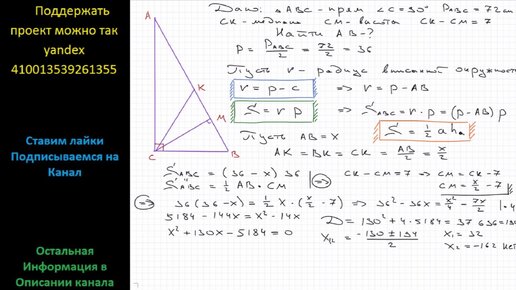 Поддержать
проект можно так
yandex
410013539261355
Ставим лайки
Подписываемся на
Канал
Остальная
Информация в
Описании канала
A
K
M
C
B
Дано: △ABC - прям ∠C = 90° P_ABC = 72 см
CK - медиана CM - высота CK - CM = 7
Найти AB - ?
P = P_ABC/2 = 72/2 = 36
Пусть r - радиус вписанной окружности
r = p - c => r = p - AB
S = r p => S_ABC = r · p = (p - AB) p
Пусть AB = x S = 1/2 a h_a
AK = BK = CK = AB/2 = x/2
S_ABC = (36 - x) 36
S_ABC = 1/2 AB · CM
CK - CM = 7 => CM = CK - 7
CM = x/2 - 7
=> 36 (36 - x) = 1/2 x · (x/2 - 7) => 36² - 36x = x²/4 - 7x/2 | · 4
5184 - 144x = x² - 14x
x² + 130x - 5184 = 0
D = 130² + 4 · 5184 = 37 636 = 194²
x₁,₂ = (-130 ± 194)/2
x₁ = 32
x₂ = -162 нет